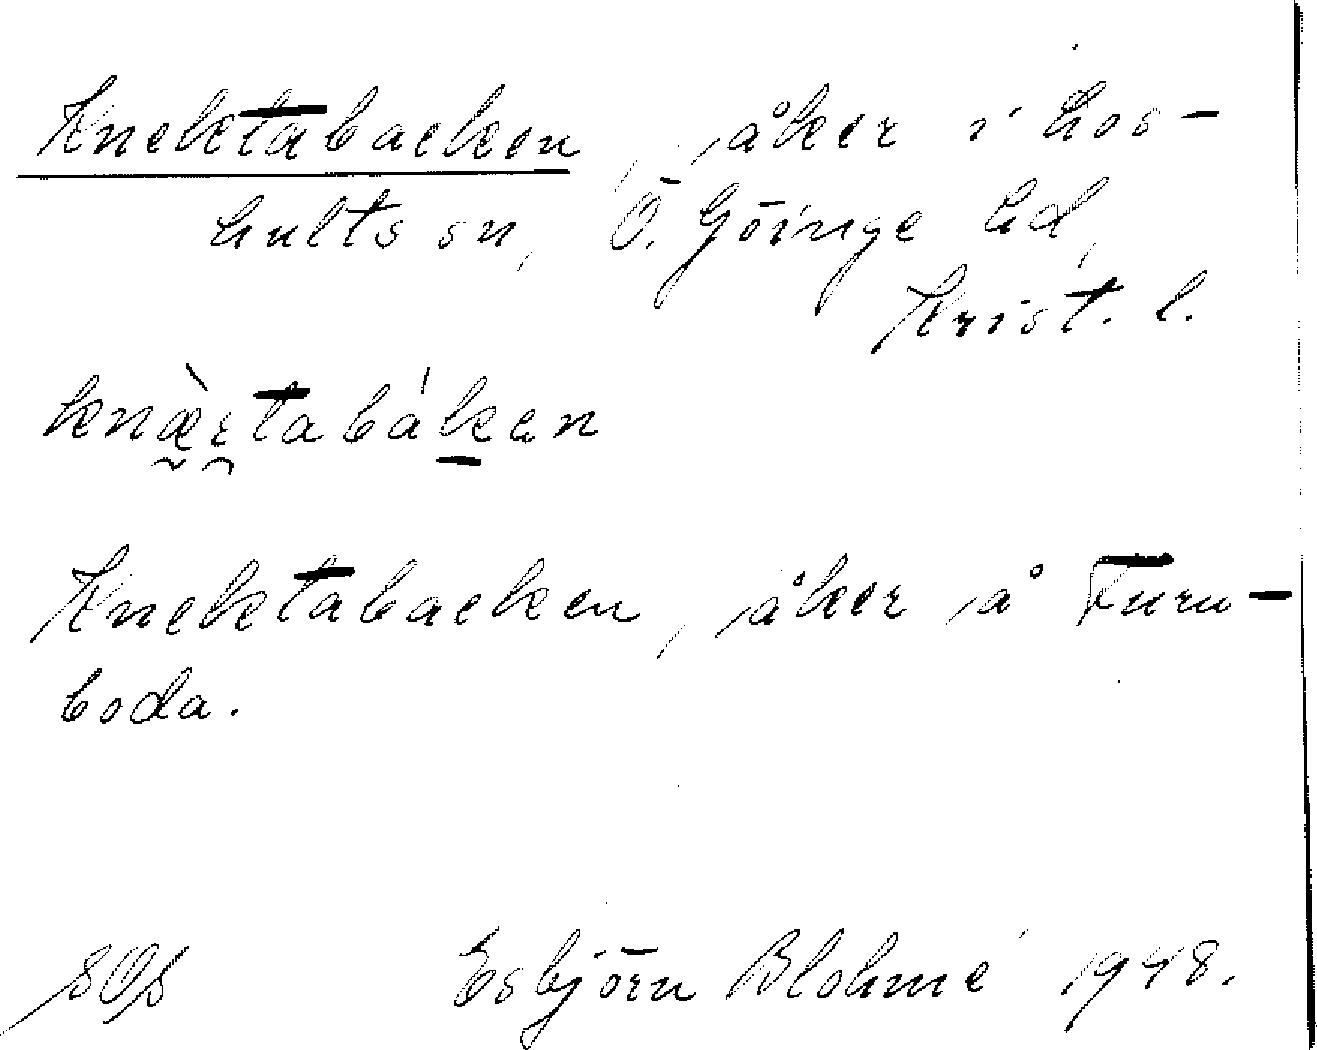 Knektabacken, åker i Los-
hults sn, Ö. Göinge hd,
Krist. l.
Knektabacken, åker å Furu-
boda.
Esbjörn Blohmé 1948.